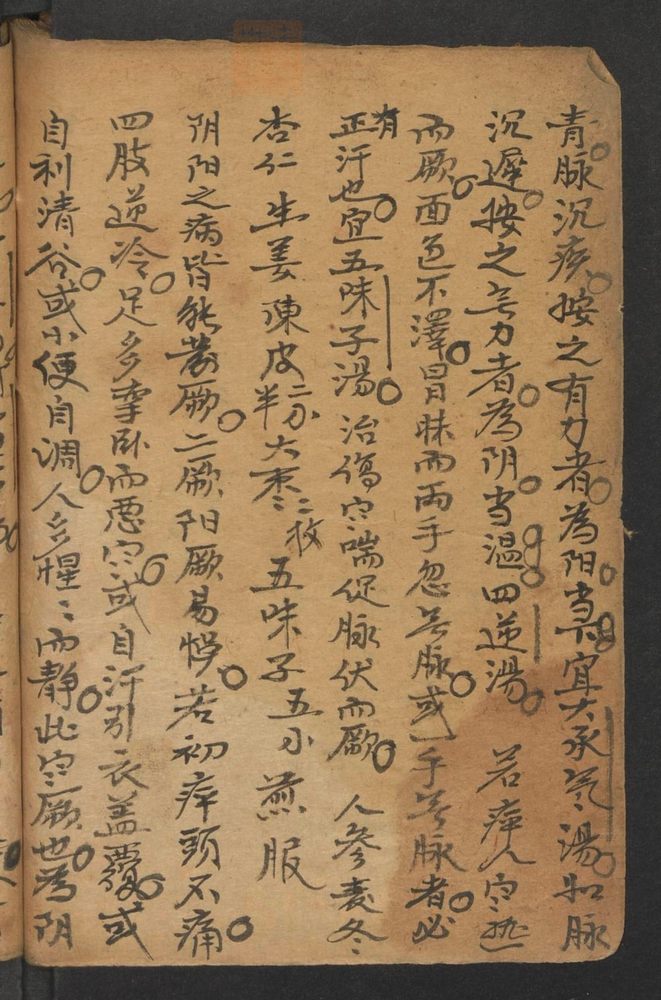 青脉沉疾按之有力者為阳当下宜大承氣湯如脉
沉遲按之无力者為阴当温四逆湯 若病人寒热
而厥面色不澤冒昧而両手忽无脉或一手无脉者必
有正汗也宜五味子湯治傷寒喘促脉伏而厥 人參麦冬
杏仁生姜陳皮二分半大棗二枚 五味子五分 煎服
阴阳之病皆能發厥二厥阳厥易惧若初病頭不痛
四肢逆冷足多挛卧而悪寒或自汗引衣盖覆或
自利清谷或小便自调人多惺〻而静此寒厥也為阴